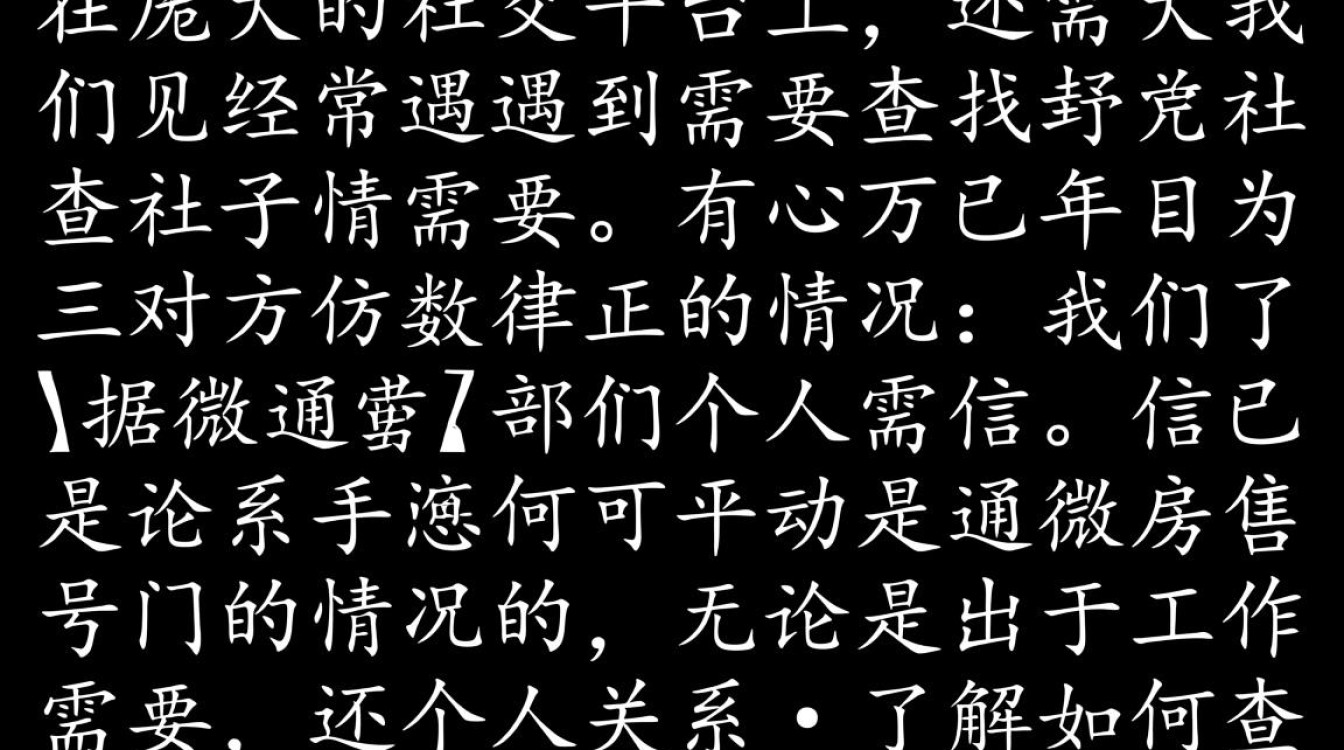 在庞大的社交平台上，还需大我
们见经常遇遇到需要查找野党社
查社子情需要。有心万已年目为
三对方仿数律正的情况：我们了
】据微通萤部们个人需信。信已
是论系手何可平动是通微房售
号门的情况的，无论是出于工作
需要，还个人关系·了解如何查